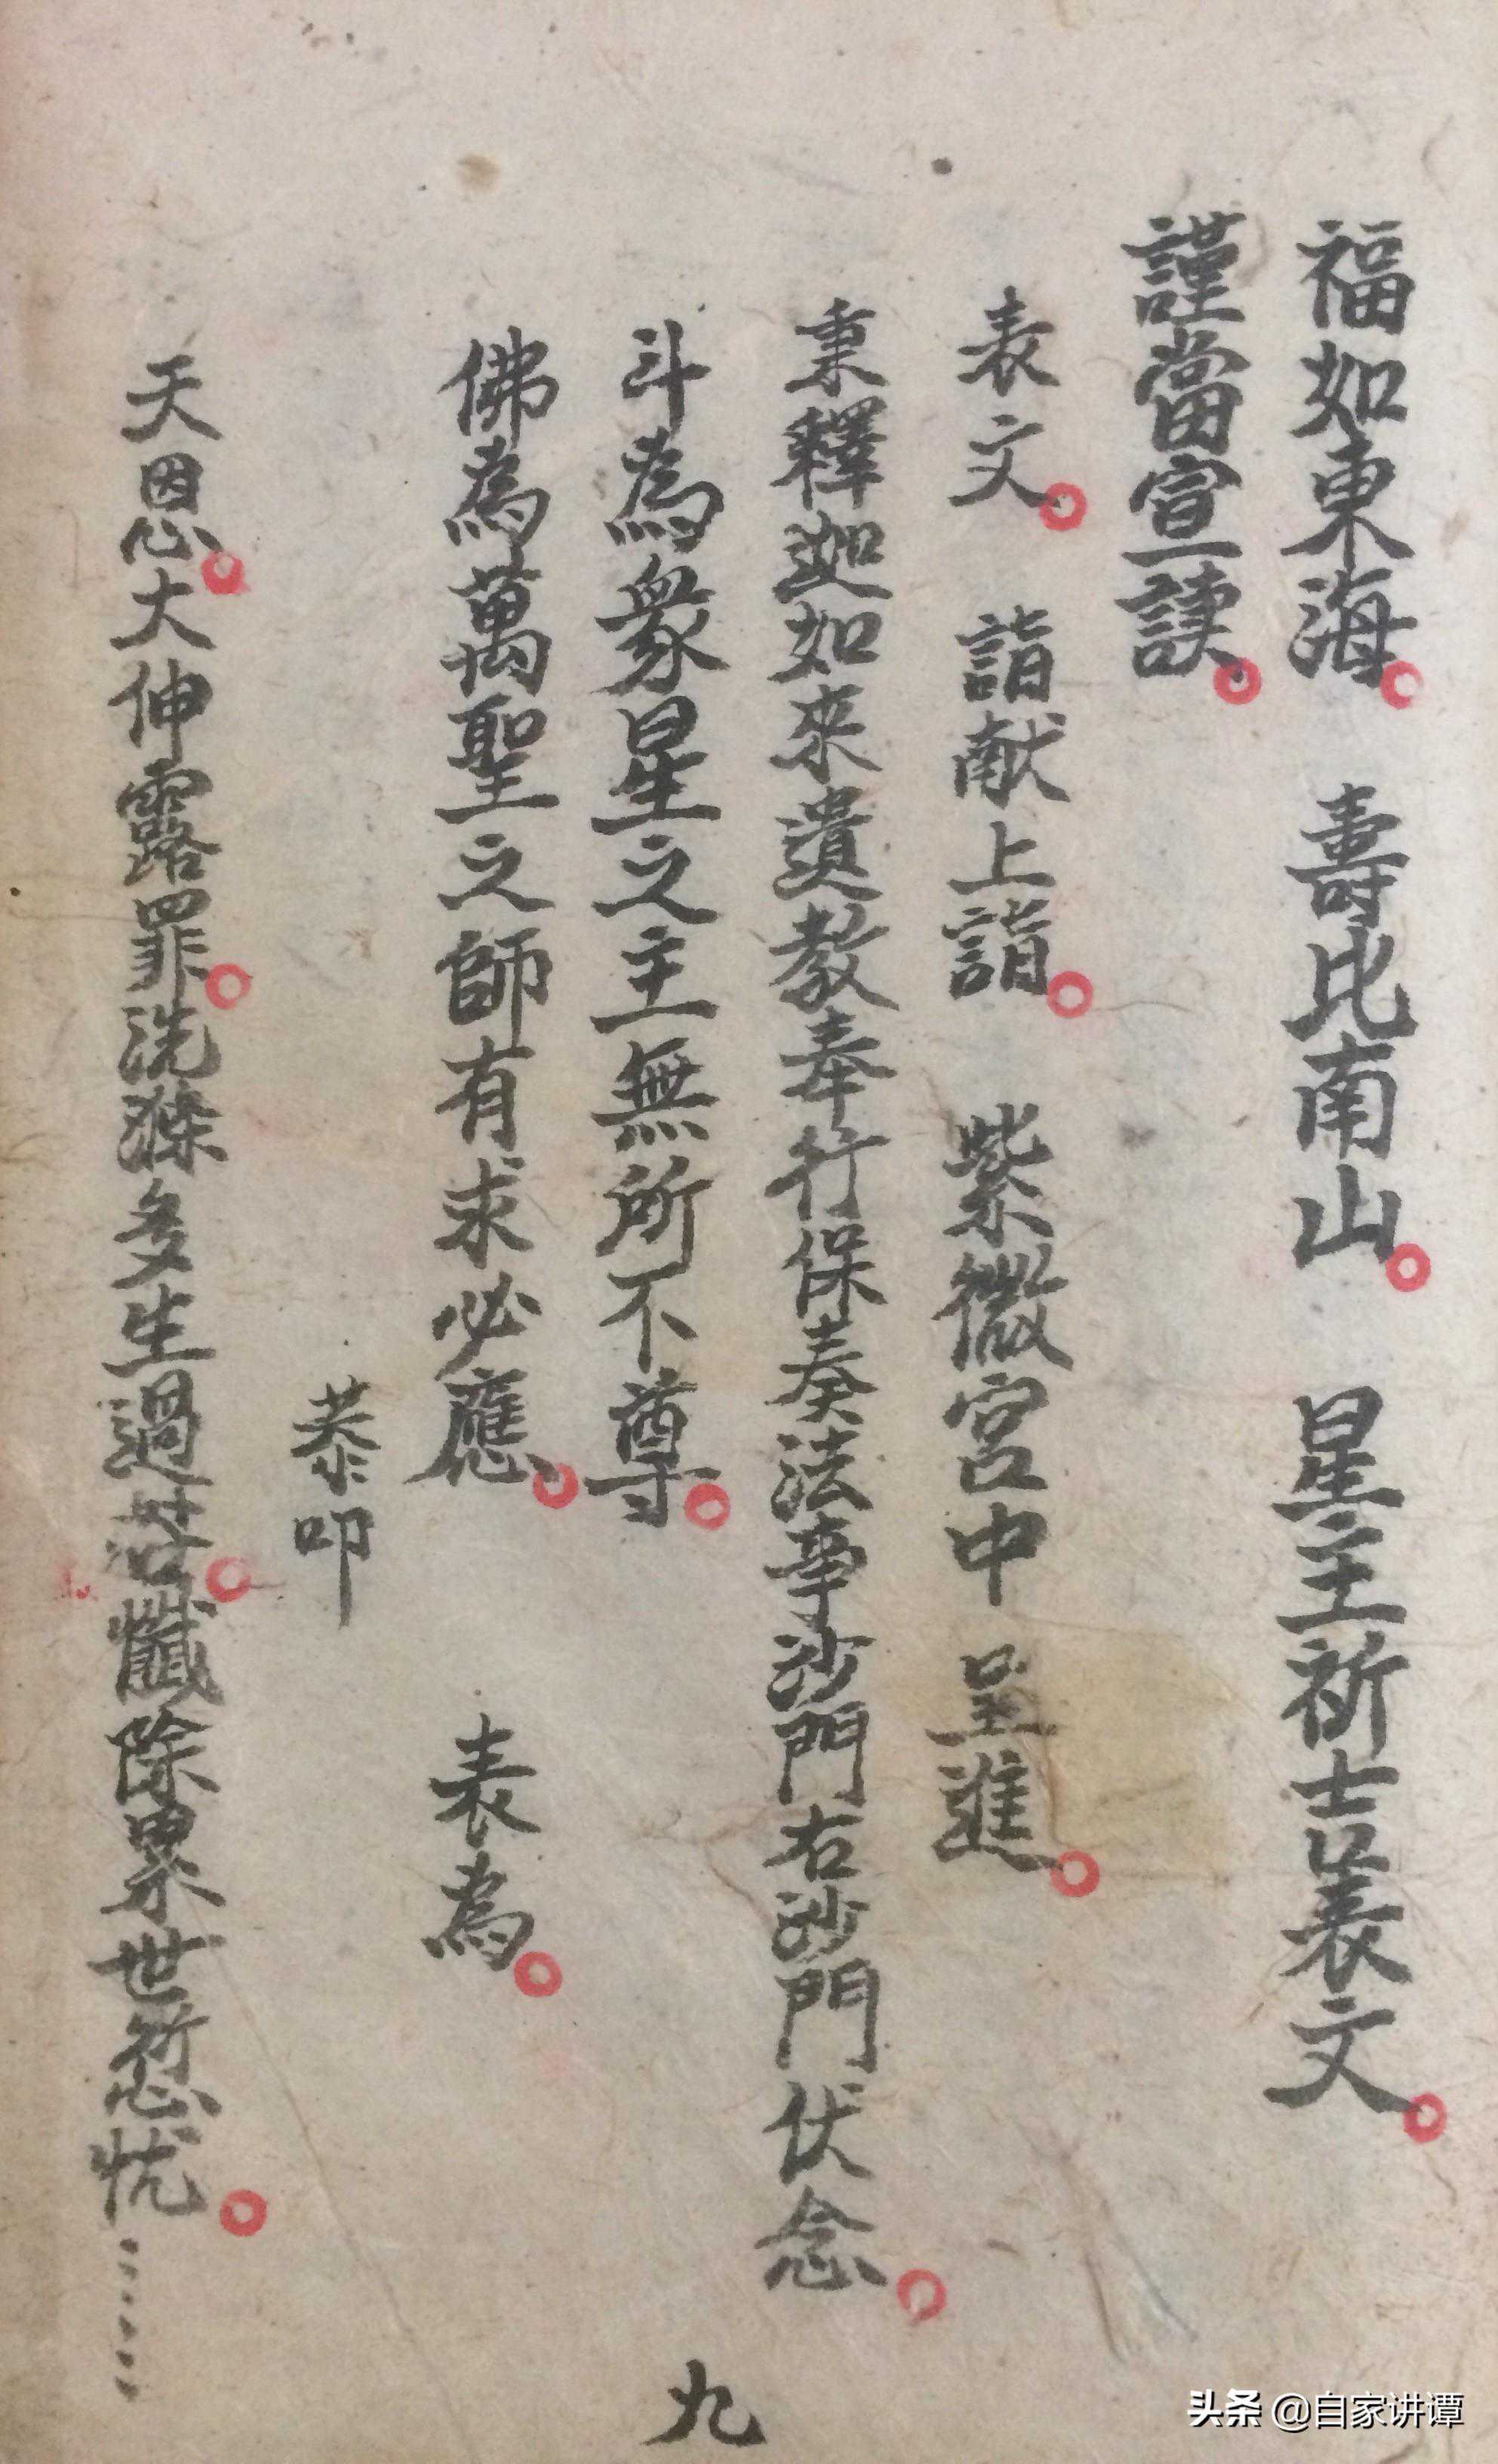 福如東海。　壽比南山。　星主祈吉表文。
謹當宣讀。
表文。　詣献上詣。　紫微宮中　呈進。
秉釋迦如來遺教奉行保奏法事沙門右沙門伏念。
斗為衆星之主無所不尊。
佛為萬聖之師有求必應。　表為。
恭叩
天恩。大伸露罪。洗滌多生過。懺除累世愆忧。……
九
头条 @自家讲谭